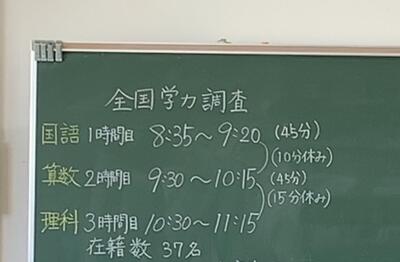 全国学力調査
国語 1時間目 8:35～9:20 (45分)
(10分休み)
算数 2時間目 9:30～10:15 (45分)
(15分休み)
理科 3時間目 10:30～11:15
在籍数 37名